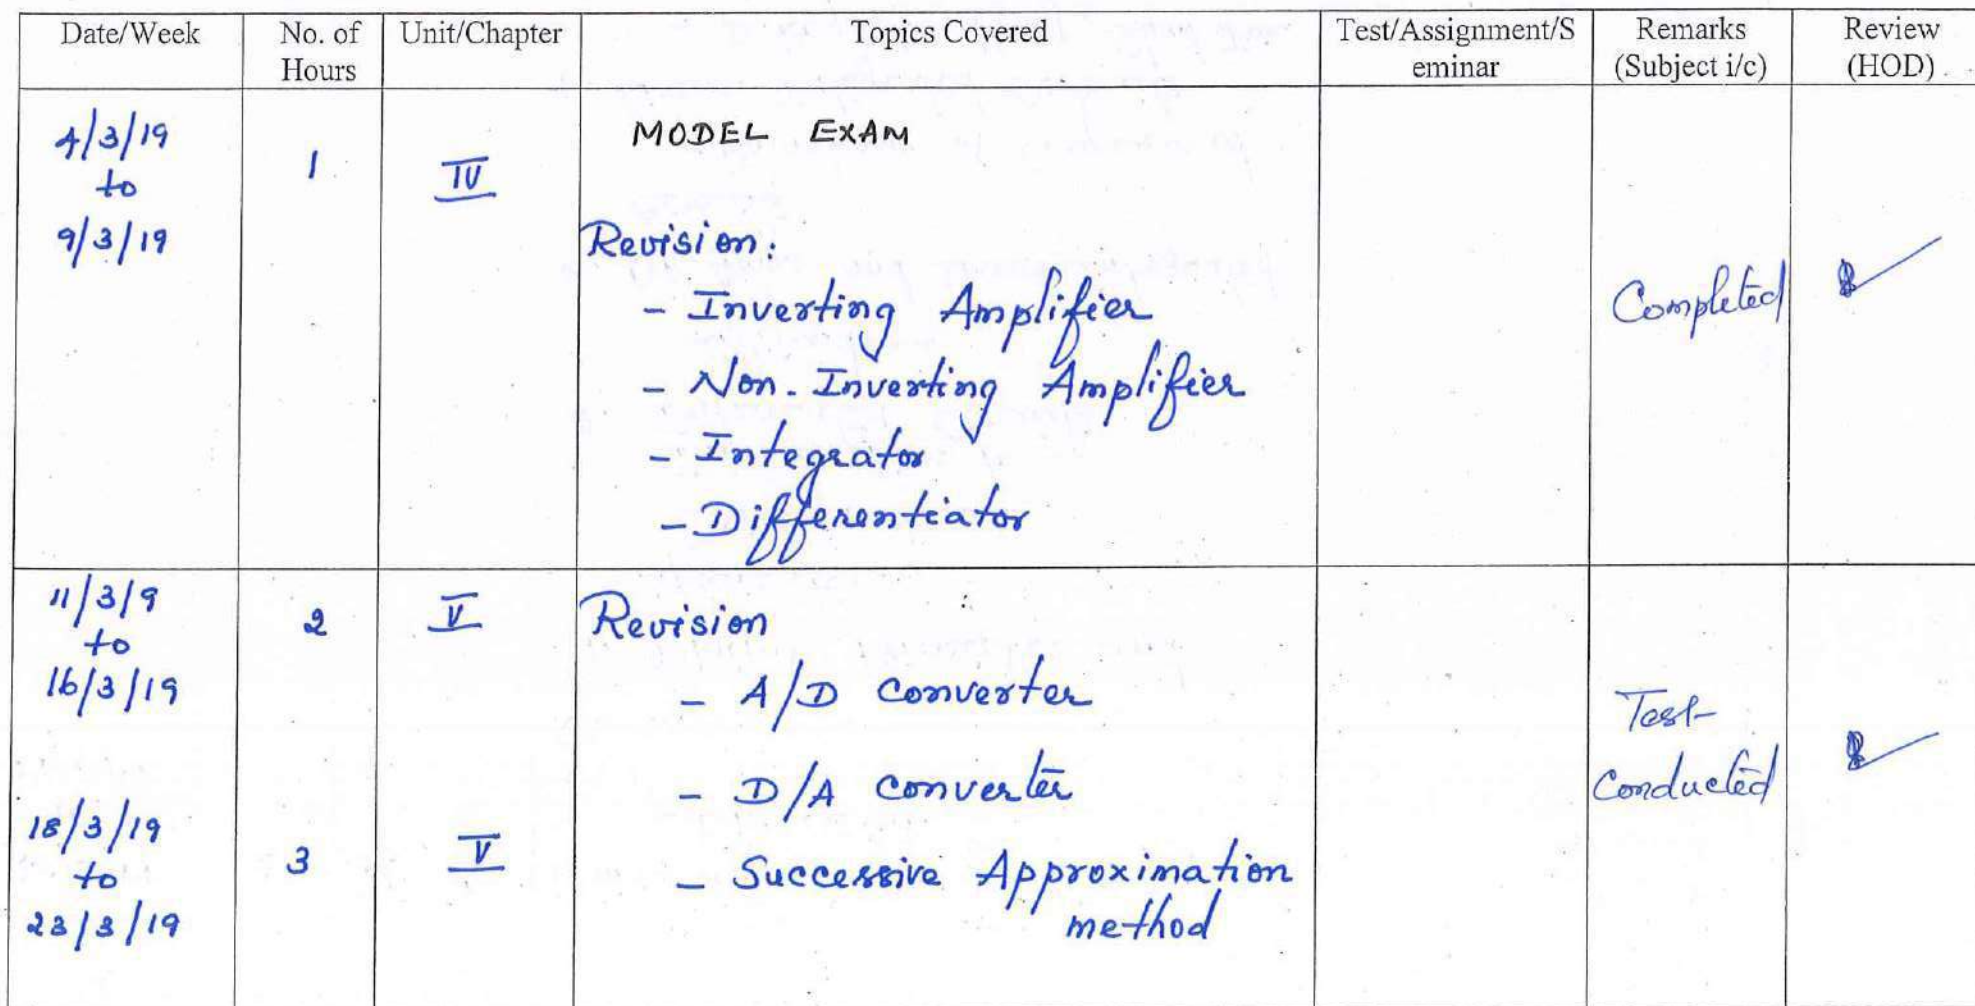 Date/Week No. of Hours Unit/Chapter Topics Covered Test/Assignment/S eminar Remarks (Subject i/c) Review (HOD)
4/3/19
to
9/3/19
1
IV
MODEL EXAM
Revision:
- Inverting Amplifier
- Non-Inverting Amplifier
- Integrator
- Differentiator
Completed
11/3/9
to
16/3/19
2
V
Revision
- A/D converter
- D/A converter
Test
Conducted
18/3/19
to
23/3/19
3
V
- Successive Approximation
method